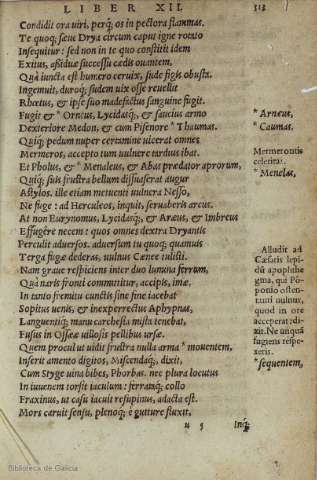 LIBER XII. 313
Condidit ora uiri, perq́; os in pectora flammas.
Te quoq; sæui Drya circum caput igne rotato
Insequitur: sed non in te quoq; constitit idem
Exitus, assiduæ successu cædis ouantem,
Quà iuncta est humero ceruix, sude figis obusta.
Ingemuit, duroq́; sudem uix osse reuellit
Rhœtus, & ipse suo madefactus sanguine fugit.
Fugit & * Orneus, Lycidasq́;, & saucius armo
Dexteriore Medon, & cum Pisenore * Thaumas.
Quiq́; pedum nuper certamine uicerat omnes
Mermeros, accepto tum uulnere tardius ibat.
Et Pholus, & * Menaleus, & Abas prædator aprorum,
Quiq́; suis frustra bellum dissuaserat augur
Astylos. ille etiam metuenti uulnera Nesso,
Ne fuge: ad Herculeos, inquit, seruaberis arcus.
At non Eurynomus, Lycidasq́;, & Aræus, & Imbreus
Effugêre necem: quos omnes dextra Dryantis
Perculit aduersos. aduersum tu quoq; quamuis
Terga fugæ dederas, uulnus Cænee tulisti.
Nam graue respiciens inter duo lumina ferrum,
Quà naris fronti committitur, accipis, imæ.
In tanto fremitu cunctis sine fine iacebat
Sopitus uenis, & inexperrectus Aphypnas,
Languentiq́; manu carchesia mista tenebat,
Fusus in Ossææ uillosis pellibus ursæ.
Quem procul ut uidit frustra nulla arma * mouentem,
Inserit amento digitos, Miscendaq́;, dixit,
Cum Styge uina bibes, Phorbas. nec plura locutus
In iuuenem torsit iaculum: ferrataq́; collo
Fraxinus, ut casu iacuit resupinus, adacta est.
Mors caruit sensu, plenoq́; è gutture fluxit,
u 5 Inq́;
* Arneus,
* Caumas.
Mermerontis
celeritas.
* Menelas,
Alludit ad
Cæsaris lepi-
dũ apophthe
gma, qui Põ-
ponio osten-
tanti uulnus,
quod in ore
acceperat: di-
xit. Ne unquã
fugiens respe-
xeris.
* sequentem,
Biblioteca de Galicia